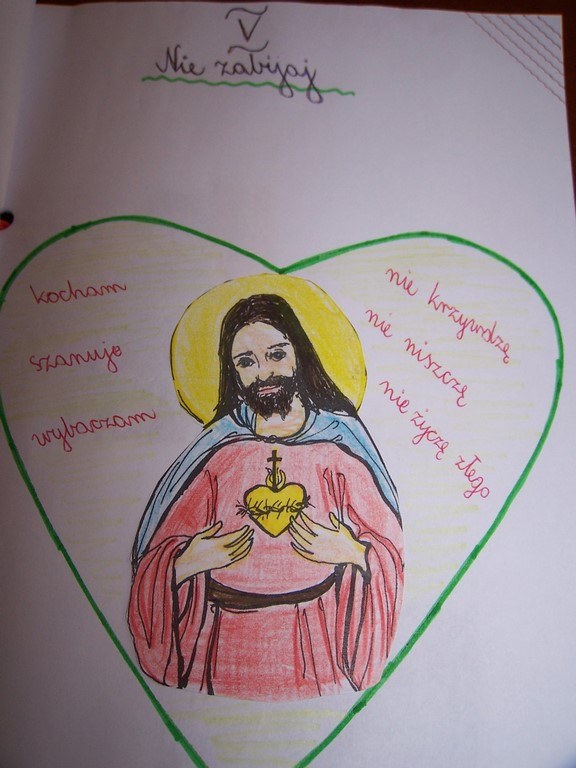 V
Nie zabijaj
kocham
szanuję
wybaczam
nie krzywdzę
nie niszczę
nie życzę złego